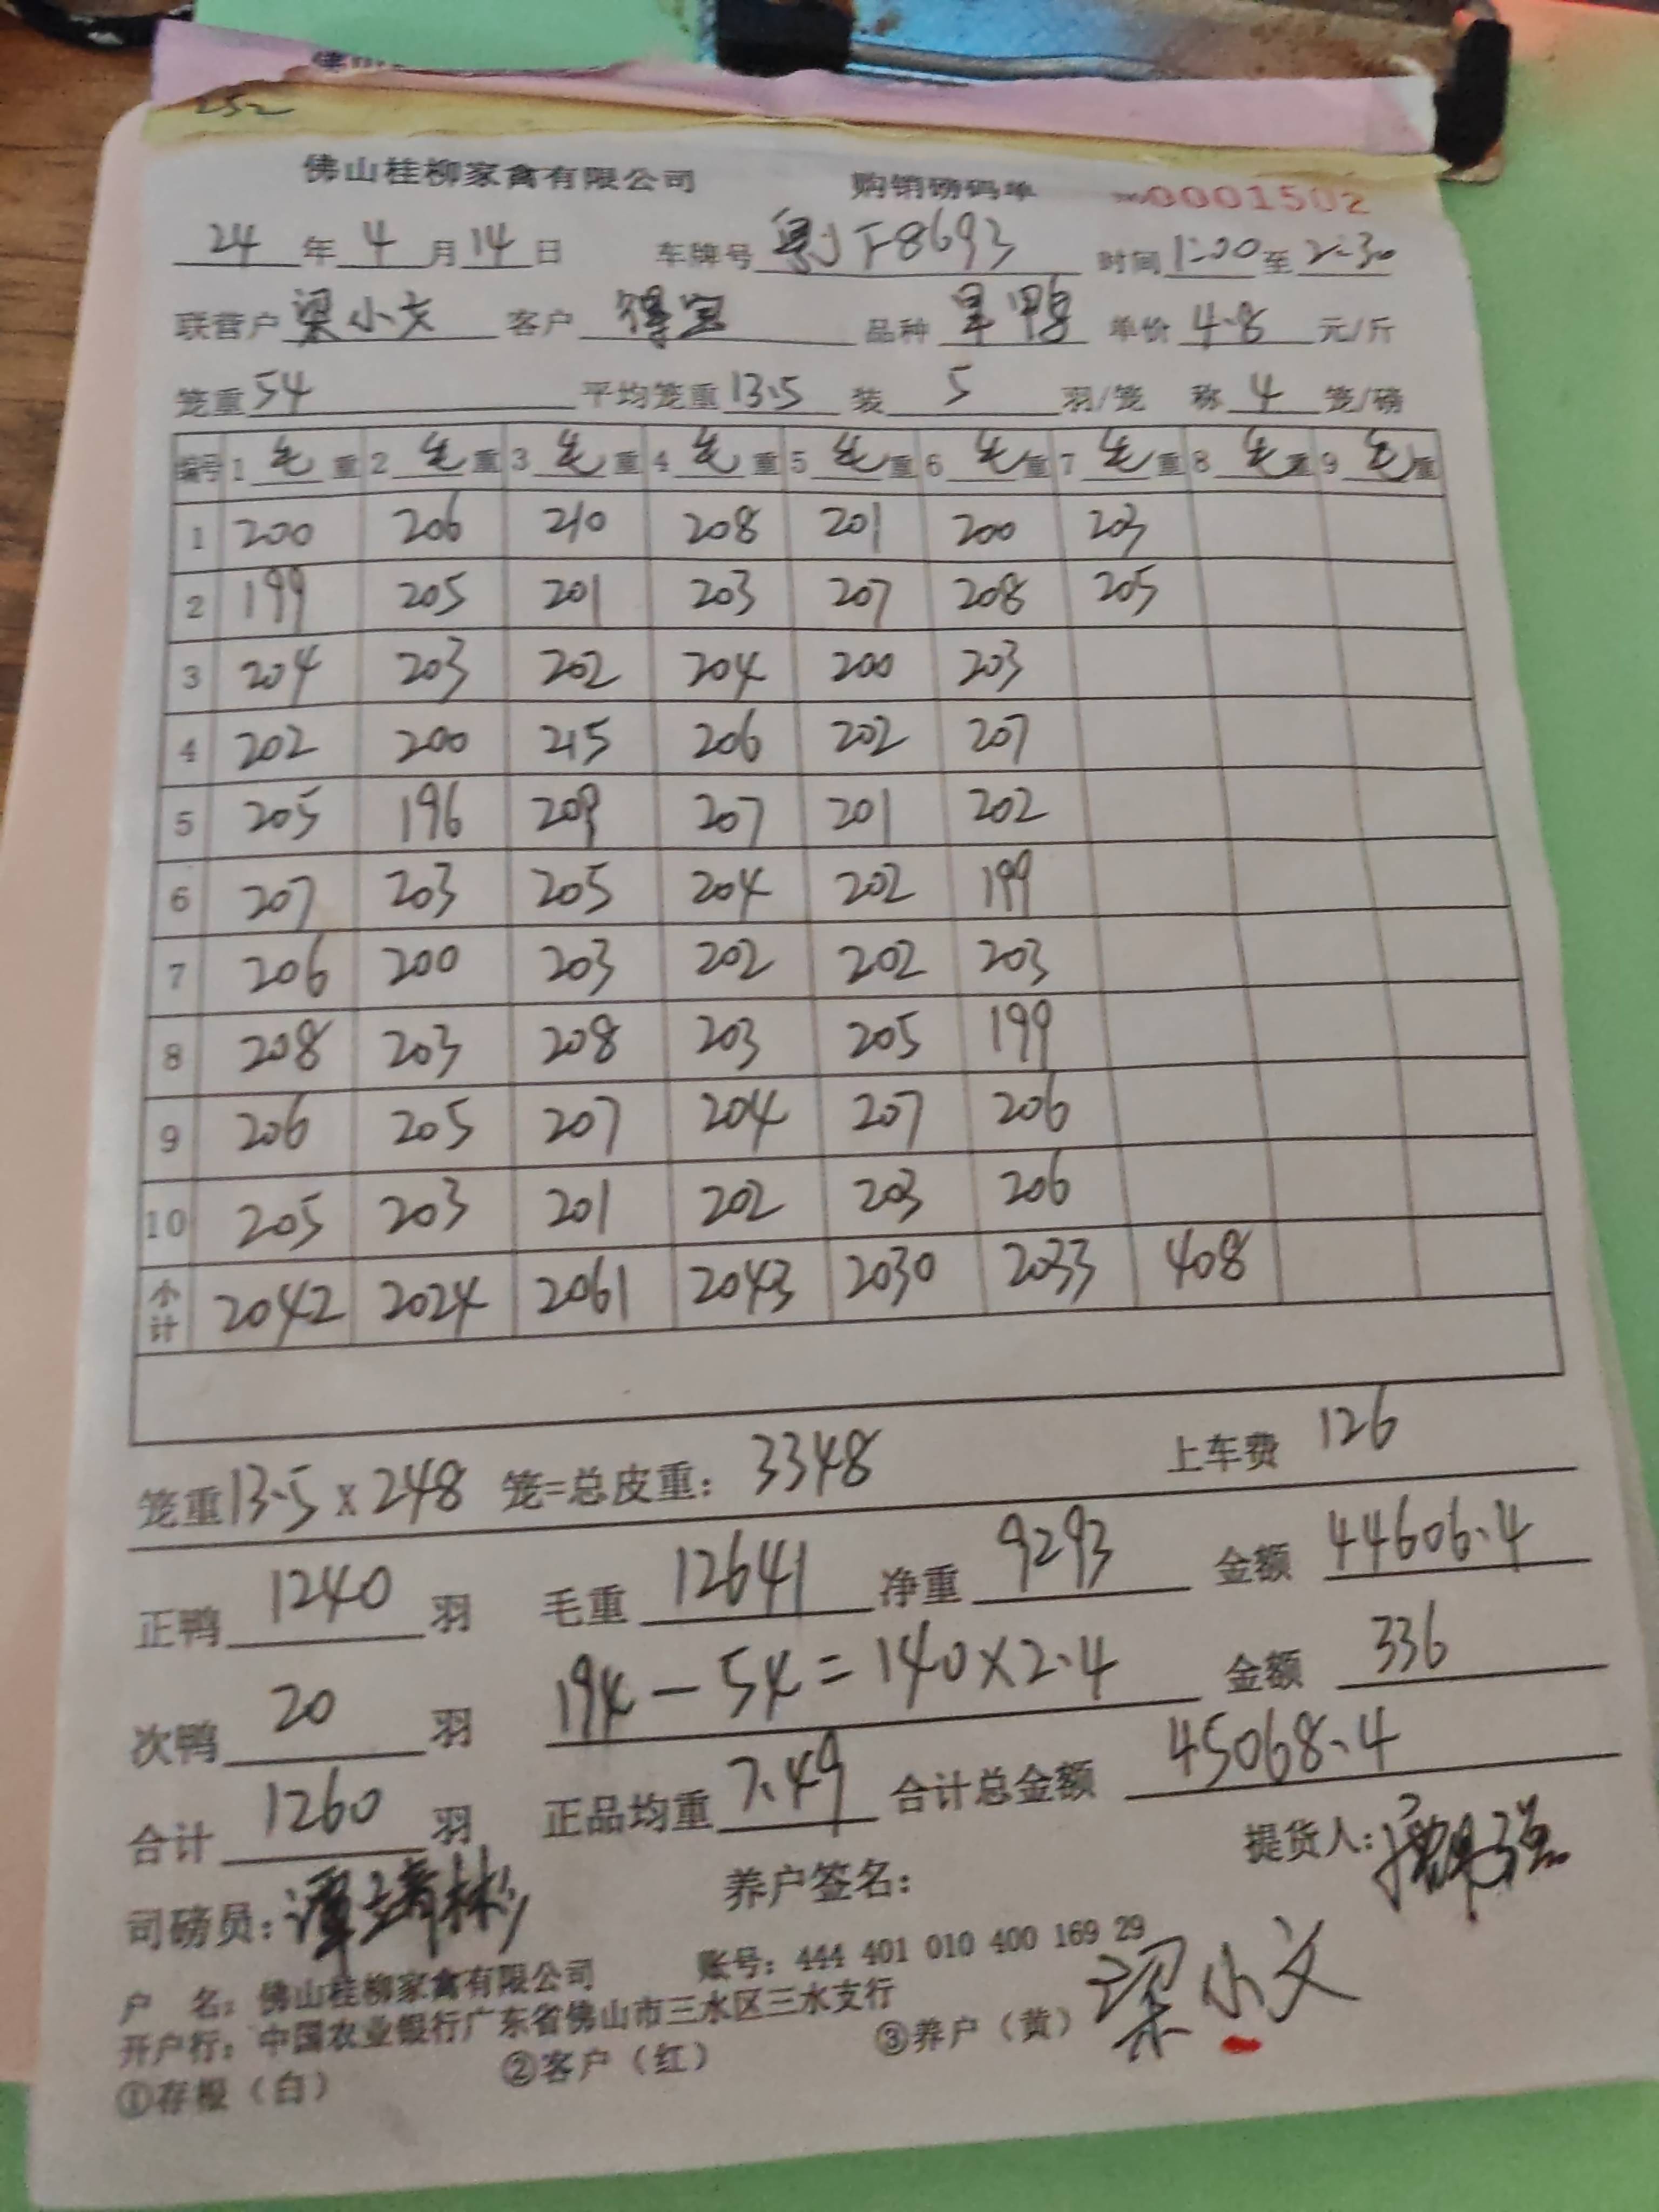 252
佛山桂柳家禽有限公司 购销磅码单 №0001502
24 年 4 月 14 日 车牌号 粤J F8693 时间 1:00 至 2:30
联营户 梁小文 客户 得宝 品种 旱鸭 单价 4.8 元/斤
笼重 54 平均笼重 13.5 装 5 羽/笼 称 4 笼/磅
编号 1 毛 重 2 毛 重 3 毛 重 4 毛 重 5 毛 重 6 毛 重 7 毛 重 8 毛 重 9 毛 重
1 200 206 210 208 201 200 203
2 199 205 201 203 207 208 205
3 204 203 202 204 200 203
4 202 200 215 206 202 207
5 205 196 209 207 201 202
6 207 203 205 204 202 199
7 206 200 203 202 202 203
8 208 203 208 203 205 199
9 206 205 207 204 207 206
10 205 203 201 202 203 206
小计 2042 2024 2061 2043 2030 2033 408
笼重 13.5 x 248 笼=总皮重: 3348 上车费 126
正鸭 1240 羽 毛重 12641 净重 9293 金额 44606.4
次鸭 20 羽 194-54=140×2.4 金额 336
合计 1260 羽 正品均重 7.49 合计总金额 45068.4
司磅员: 谭靖彬 养户签名: 提货人:
户 名: 佛山桂柳家禽有限公司 账号: 444 401 010 400 169 29
梁小文
开户行: 中国农业银行广东省佛山市三水区三水支行
①存根（白） ②客户（红） ③养户（黄）